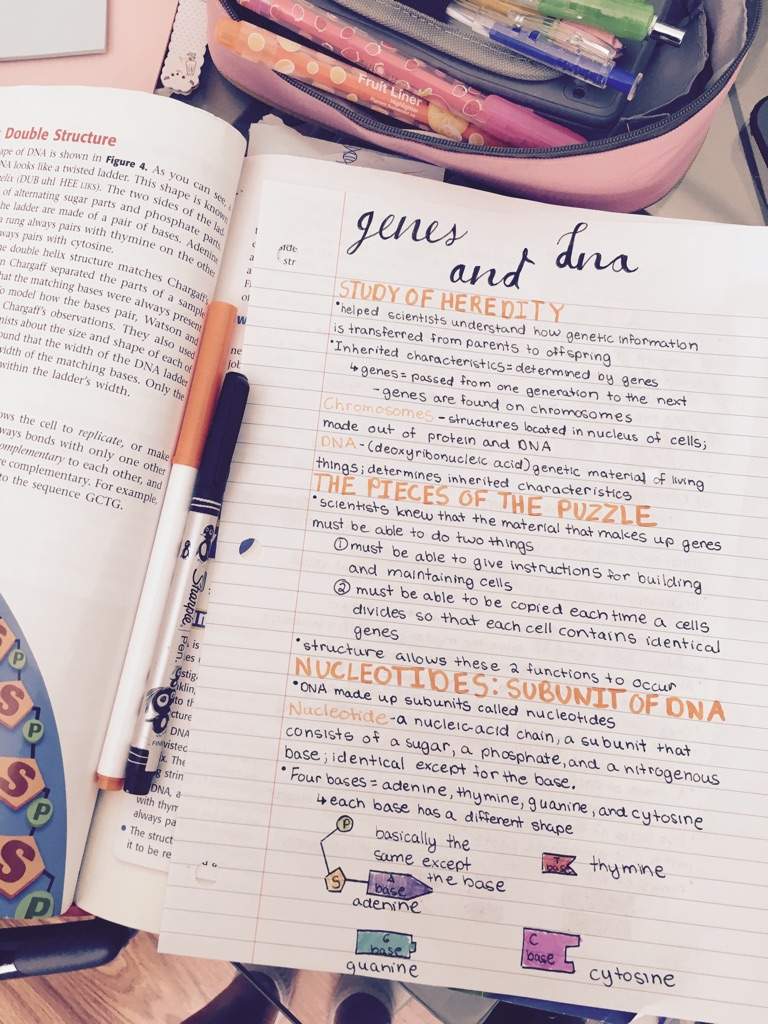 Fruit Liner
Double Structure
ape of DNA is shown in Figure 4. As you can see,
NA looks like a twisted ladder. This shape is known
elix (DUB uhl HEE LIKS). The two sides of the lad
of alternating sugar parts and phosphate parts
the ladder are made of a pair of bases. Adenine
a rung always pairs with thymine on the other
ways pairs with cytosine.
e double helix structure matches Chargaff's
n Chargaff separated the parts of a sample
hat the matching bases were always present
o model how the bases pair, Watson and
Chargaff's observations. They also used
nists about the size and shape of each of
ound that the width of the DNA ladder
width of the matching bases. Only the
within the ladder's width.
ows the cell to replicate, or make
ways bonds with only one other
omplementary to each other, and
re complementary. For example,
to the sequence GCTG.
S
P
S
P
S
P
S
P
Sharpie
Pen
DNA
DNA, a
with thym
always pa
• The struct
it to be re
genes and dna
STUDY OF HEREDITY
•helped scientists understand how genetic information
is transferred from parents to offspring
•Inherited characteristics=determined by genes
↳genes=passed from one generation to the next
-genes are found on chromosomes
Chromosomes-structures located in nucleus of cells;
made out of protein and DNA
DNA-(deoxyribonucleic acid)genetic material of living
things; determines inherited characteristics
THE PIECES OF THE PUZZLE
•scientists knew that the material that makes up genes
must be able to do two things
①must be able to give instructions for building
and maintaining cells
② must be able to be copied each time a cells
divides so that each cell contains identical
genes
•structure allows these 2 functions to occur
NUCLEOTIDES: SUBUNIT OF DNA
•DNA made up subunits called nucleotides
Nucleotide-a nucleic-acid chain, a subunit that
consists of a sugar, a phosphate, and a nitrogenous
base; identical except for the base.
•Four bases=adenine, thymine, guanine, and cytosine
↳each base has a different shape
P
basically the
same except
the base
S
A
base
adenine
T
base
thymine
G
base
guanine
C
base
cytosine